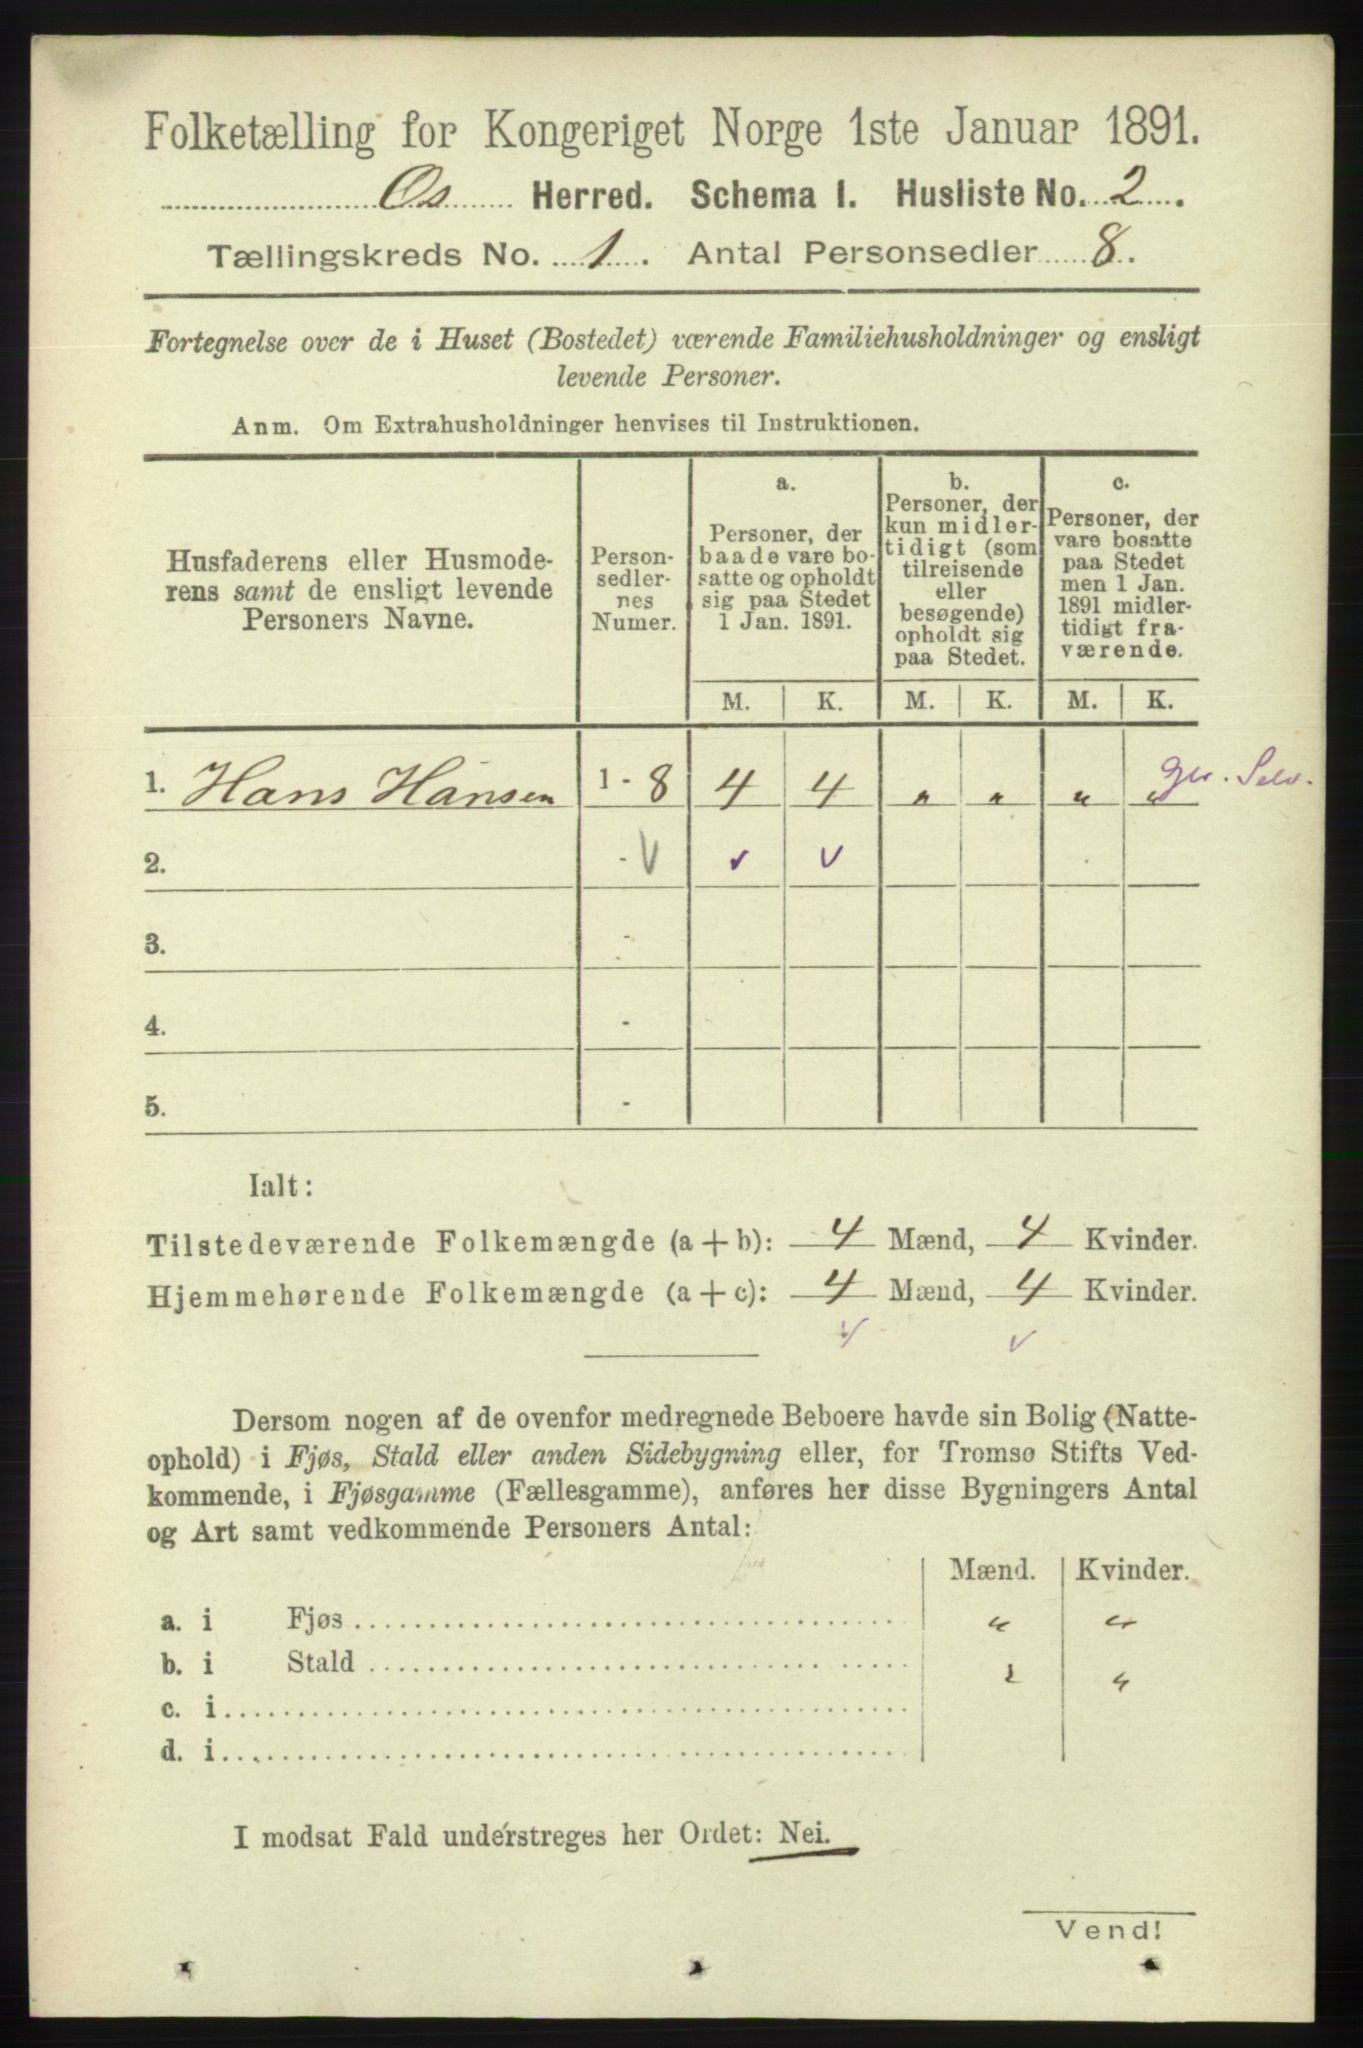 Folketælling for Kongeriget Norge 1ste Januar 1891.
Os Herred. Schema I. Husliste No. 2.
Tællingskreds No. 1. Antal Personsedler 8.
Fortegnelse over de i Huset (Bostedet) værende Familiehusholdninger og ensligt
levende Personer.
Anm. Om Extrahusholdninger henvises til Instruktionen.
Husfaderens eller Husmode-
rens samt de ensligt levende
Personers Navne.
Person-
sedler-
nes
Numer.
a.
Personer, der
baade vare bo-
satte og opholdt
sig paa Stedet
1 Jan. 1891.
b.
Personer, der
kun midler-
tidigt (som
tilreisende
eller
besøgende)
opholdt sig
paa Stedet.
c.
Personer, der
vare bosatte
paa Stedet
men 1 Jan.
1891 midler-
tidigt fra-
værende.
M. K. M. K. M. K.
1. Hans Hansen 1 - 8 4 4 " " " "
2. - V v v
3. -
4. -
5. -
Ialt:
Tilstedeværende Folkemængde (a + b): 4 Mænd, 4 Kvinder.
Hjemmehørende Folkemængde (a + c): 4 Mænd, 4 Kvinder.
v v
Dersom nogen af de ovenfor medregnede Beboere havde sin Bolig (Natte-
ophold) i Fjøs, Stald eller anden Sidebygning eller, for Tromsø Stifts Ved-
kommende, i Fjøsgamme (Fællesgamme), anføres her disse Bygningers Antal
og Art samt vedkommende Personers Antal:
Mænd. Kvinder.
a. i Fjøs " "
b. i Stald " "
c. i
d. i
I modsat Fald understreges her Ordet: Nei.
Vend!